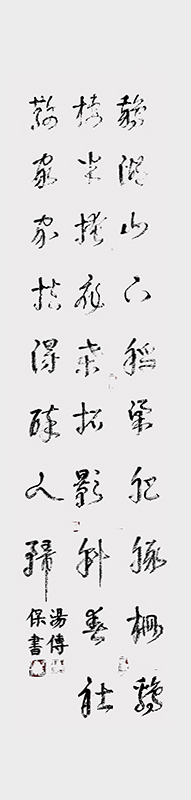 鵝湖山下稻粱肥豚柵鷄
棲半掩扉桑柘影斜春社
散家家扶得醉人歸
湯傳
保書